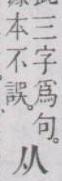 三字爲句。
本不誤。
从